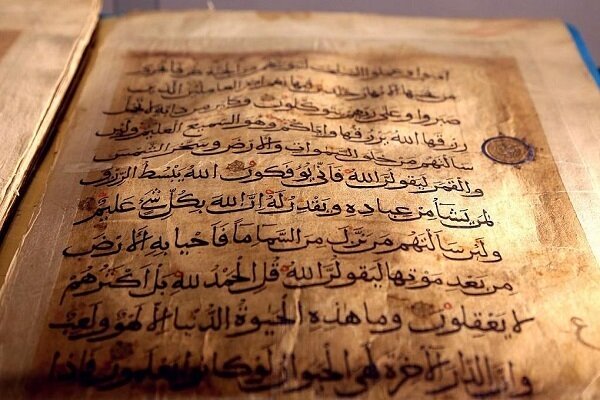 امنوا وعملوا الصالحات لنبوئنهم من الجنة غرفا تجري
من تحتها الانهار خالدين فيها نعم اجر العاملين الذين
صبروا وعلى ربهم يتوكلون وكاين من دابة لا تحمل
رزقها الله يرزقها واياكم وهو السميع العليم ولئن
سالتهم من خلق السموات والارض وسخر الشمس
والقمر ليقولن الله فانى يؤفكون الله يبسط الرزق
لمن يشا من عباده ويقدر له ان الله بكل شئ عليم
ولئن سالتهم من نزل من السما ما فاحيا به الارض
من بعد موتها ليقولن الله قل الحمد لله بل اكثرهم
لا يعقلون وما هذه الحيوة الدنيا الا لهو ولعب
ع
وان الدار الاخرة لهي الحيوان لو كانوا يعلمون فاذا